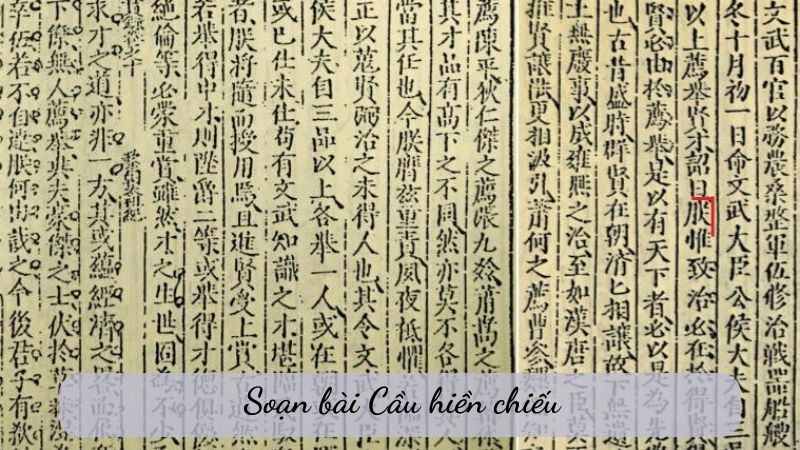 文武百官以務農桑整軍伍修治戰器船艘
冬十月初一日命文武大臣公侯大夫自三
以上薦舉賢才詔曰朕惟致治必在於得賢
賢必由於薦舉是以有天下者必以是為先
也古昔盛時群賢在朝濟匕相讓故下無遺
士無廢事以成雍熙之治至如漢唐之臣莫
推賢讓能更相汲引蕭何之薦曹參
薦陳平狄仁傑之薦張九齡蕭嵩之
其才品有高下之不同然亦莫不各
當其任也今朕膺茲重責夙夜祗懼
正以蒐賢弼治之未得人也其令文武
侯大夫自三品以上各舉一人或在朝
或已仕未仕苟有文武知識之才堪
者朕將隨而授用焉且進賢受上賞
若舉得中才則陞爵二等或舉得才德俱
絕倫等必眾重賞雖然才之生世固為不少
求才之道亦非一方其或蘊經濟之
下僚無人薦舉與夫豪傑之士伏於草萊
若不自達朕何由哉之今後君子有
Soạn bài Cầu hiền chiếu